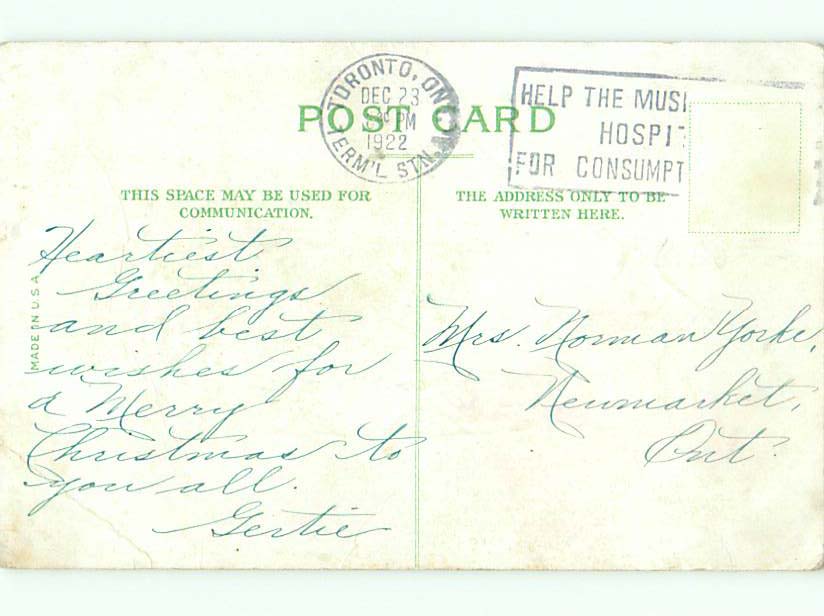 TORONTO, ONT.
DEC 23
PM
1922
TERM'L STN.
HELP THE MUSK
HOSPIT
FOR CONSUMPT
POST CARD
THIS SPACE MAY BE USED FOR
COMMUNICATION.
THE ADDRESS ONLY TO BE
WRITTEN HERE.
MADE IN USA
Heartiest
Greetings
and best
wishes for
a Merry
Christmas to
you all.
Gertie
Mrs. Norman Yorke,
Newmarket,
Ont.